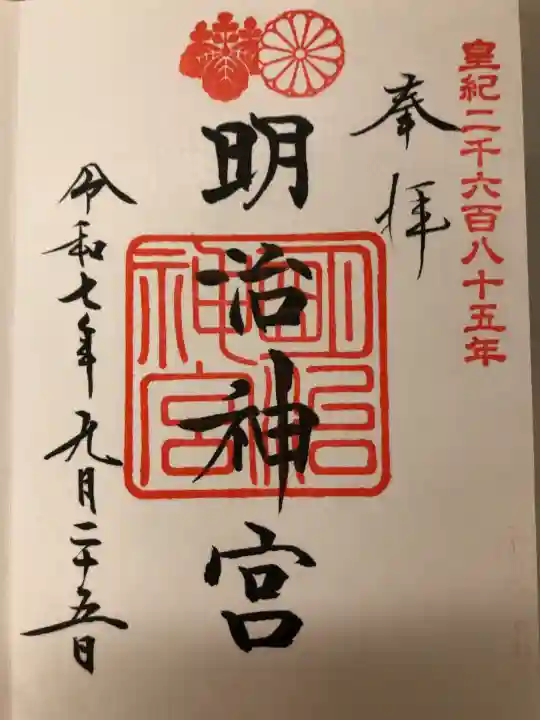 皇紀二千六百八十五年
奉拝
明治神宮
明治神宮
令和七年九月二十五日